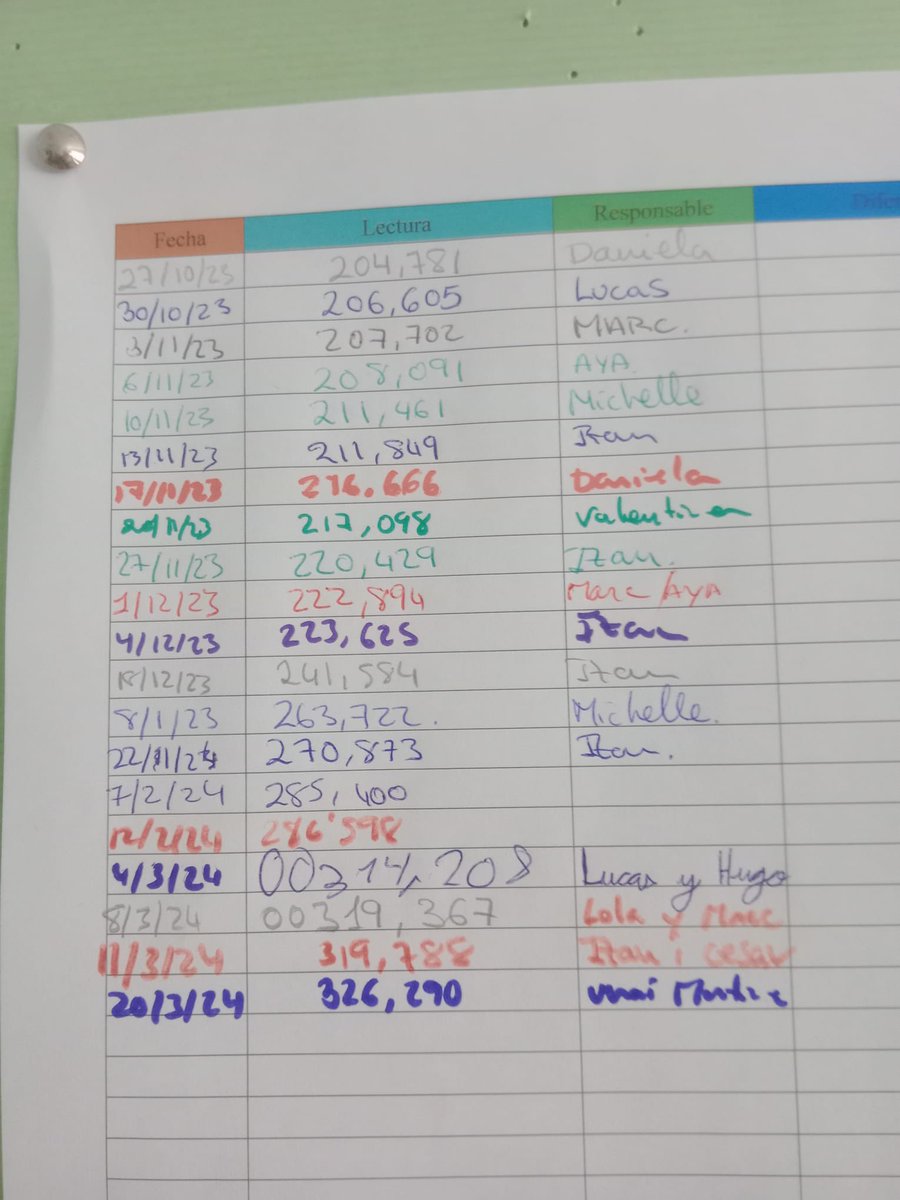 Fecha Lectura Responsable Dife
27/10/23 204,781 Daniela
30/10/23 206,605 Lucas
3/11/23 207,702 MARC.
6/11/23 208,091 AYA.
10/11/23 211,461 Michelle
13/11/23 211,849 Itan
17/11/23 216.666 Daniela
20/11/23 217,098 Valentina
27/11/23 220,429 Itan.
1/12/23 222,894 Marc/AYA
4/12/23 223,625 Itan
18/12/23 241,584 Itan
8/1/23 263,722. Michelle.
270,873 Itan.
7/2/24 285,400
12/2/24 286'598
4/3/24 00314,208 Lucas y Hugo
8/3/24 00319,367 Lola y Marc
11/3/24 319,788 Itan i cesar
20/3/24 326,290 unai